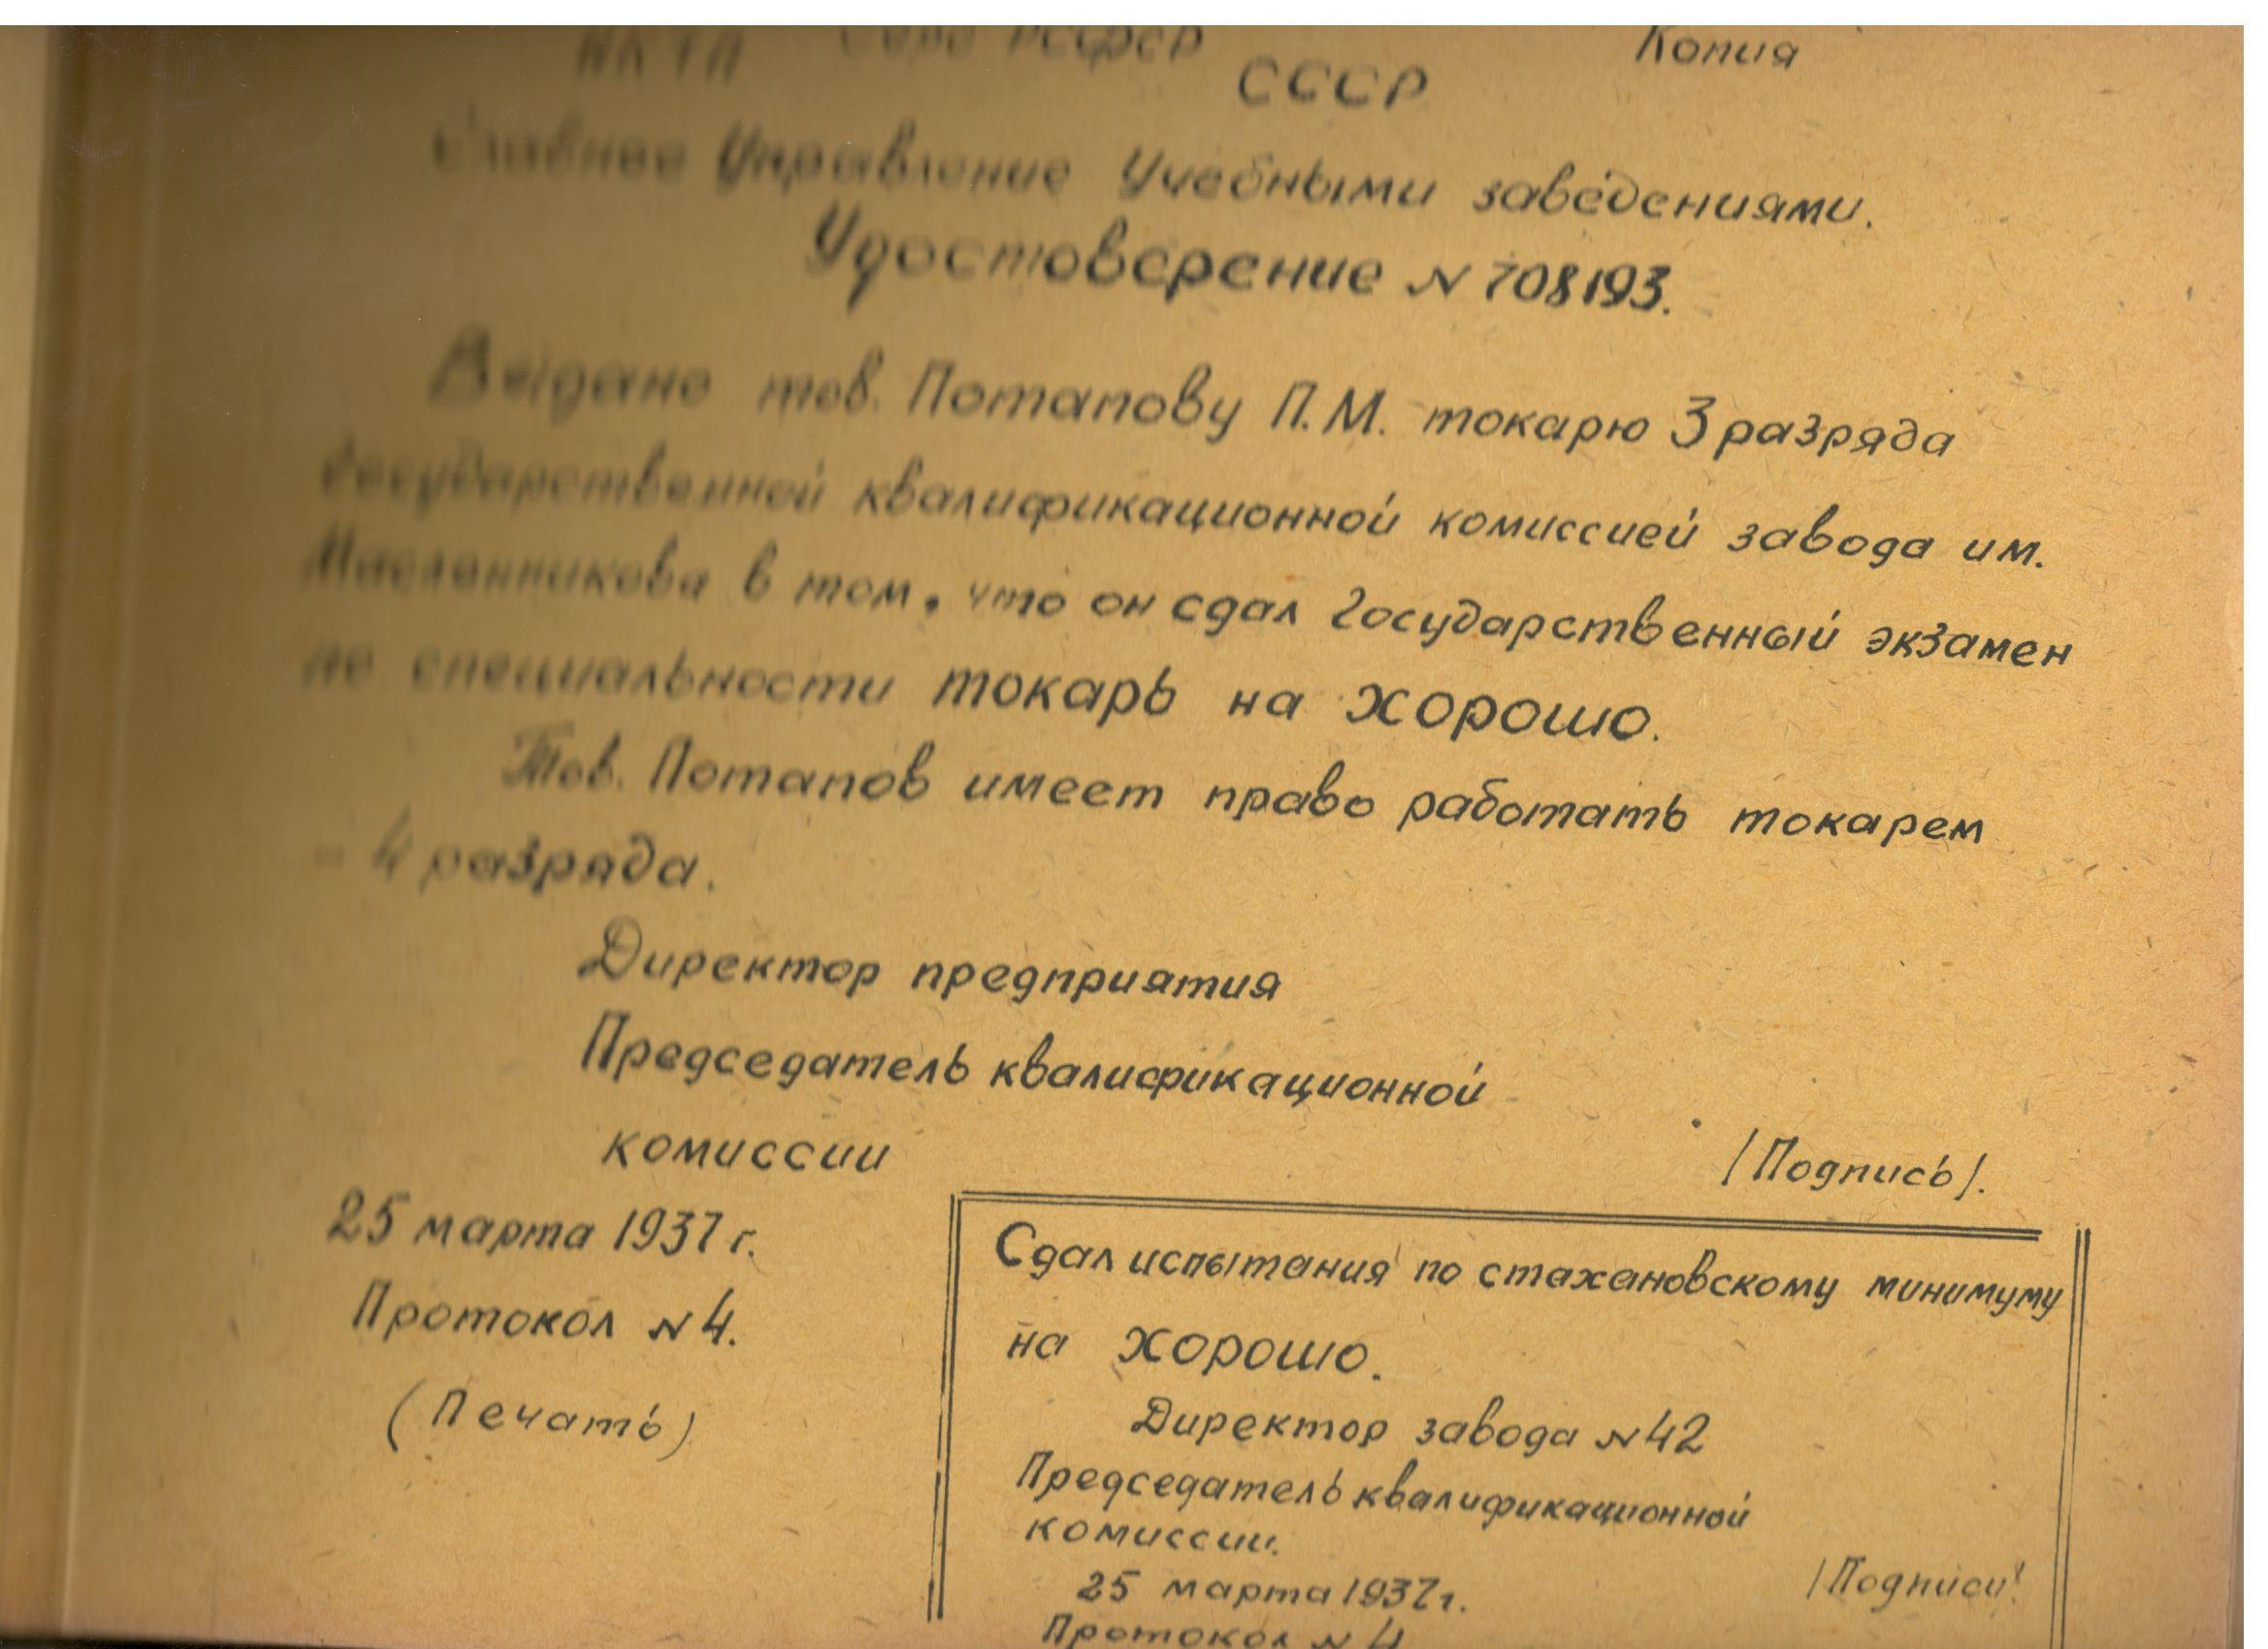 НКТП РСФСР Копия
СССР
Главное Управление Учебными заведениями.
Удостоверение N 708193.
Выдано тов. Потапову П.М. токарю 3 разряда
государственной квалификационной комиссией завода им.
Масленникова в том, что он сдал Государственный экзамен
по специальности токарь на хорошо.
Тов. Потапов имеет право работать токарем
- 4 разряда.
Директор предприятия
Председатель квалификационной
комиссии
/Подпись/.
25 марта 1937 г.
Протокол N 4.
(Печать)
Сдал испытания по стахановскому минимуму
на хорошо.
Директор завода N 42
Председатель квалификационной
комиссии.
/Подписи/
25 марта 1937 г.
Протокол N 4